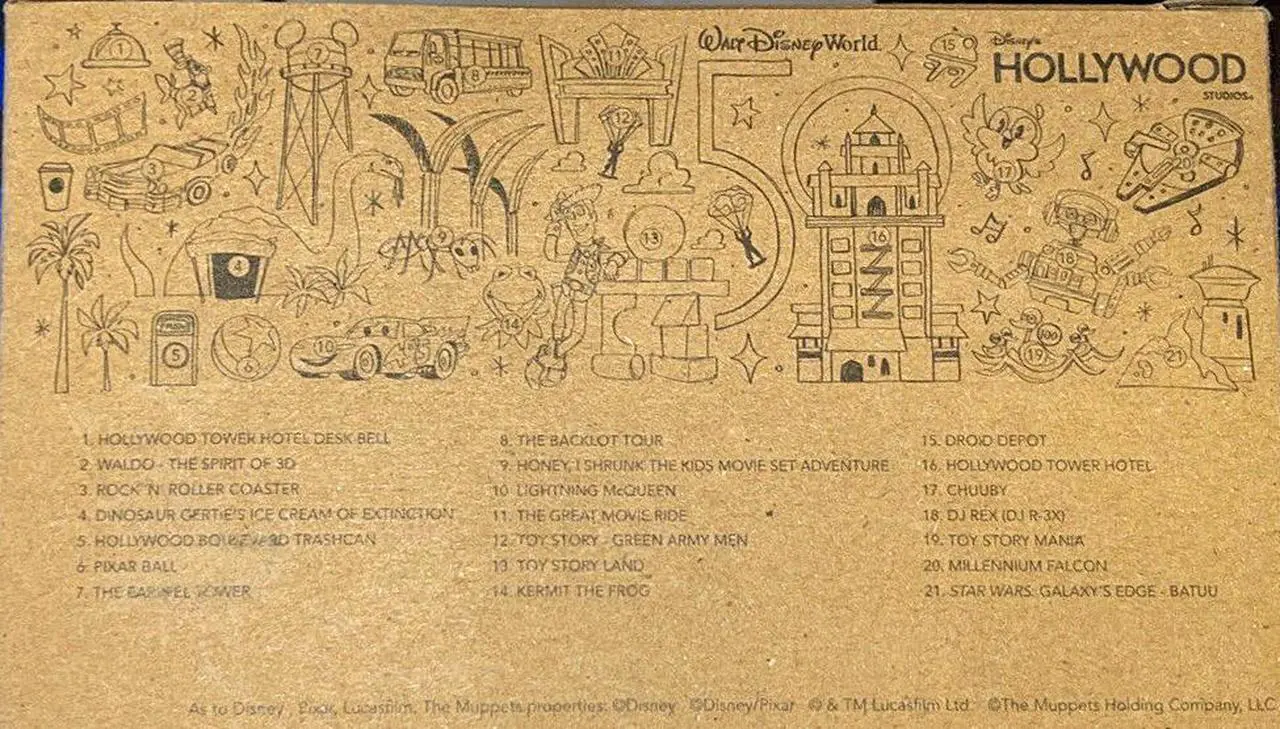 Walt Disney World
Disney's
HOLLYWOOD
STUDIOS®
50
1
2
3
4
5
6
7
8
9
10
11
12
13
14
15
16
17
18
19
20
21
100
1. HOLLYWOOD TOWER HOTEL DESK BELL
2. WALDO - THE SPIRIT OF 3D
3. ROCK 'N' ROLLER COASTER
4. DINOSAUR GERTIE'S ICE CREAM OF EXTINCTION
5. HOLLYWOOD BOULEVARD TRASHCAN
6. PIXAR BALL
7. THE EARFFEL TOWER
8. THE BACKLOT TOUR
9. HONEY, I SHRUNK THE KIDS MOVIE SET ADVENTURE
10. LIGHTNING McQUEEN
11. THE GREAT MOVIE RIDE
12. TOY STORY - GREEN ARMY MEN
13. TOY STORY LAND
14. KERMIT THE FROG
15. DROID DEPOT
16. HOLLYWOOD TOWER HOTEL
17. CHUUBY
18. DJ REX (DJ R-3X)
19. TOY STORY MANIA
20. MILLENNIUM FALCON
21. STAR WARS: GALAXY'S EDGE - BATUU
As to Disney, Pixar, Lucasfilm, The Muppets properties: ©Disney ©Disney/Pixar © & TM Lucasfilm Ltd. ©The Muppets Holding Company, LLC